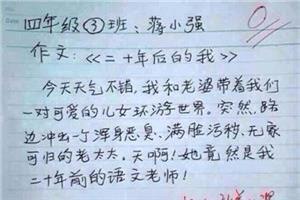 四年级③班：蒋小强
作文：《二十年后的我》
今天天气不错，我和老婆带着我们
一对可爱的儿女环游世界。突然，路
边冲出一个浑身恶臭、满脏污秽、无家
可归的老太太。天啊！她竟然是我
二十年前的语文老师！